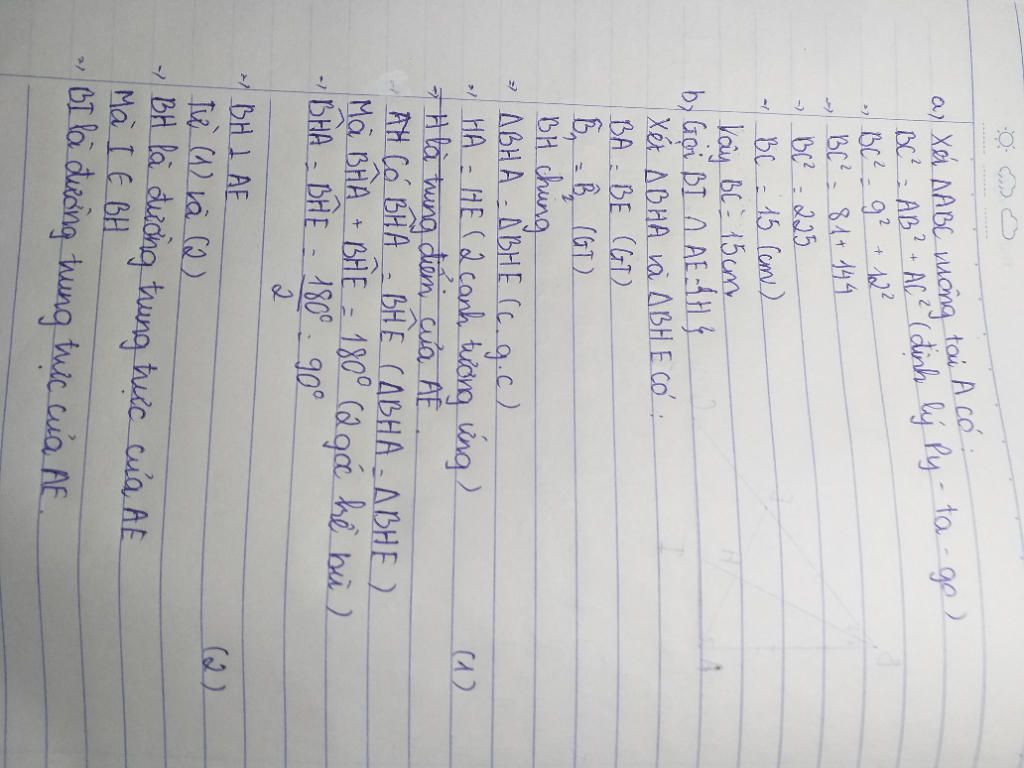 a) Xét ΔABC vuông tại A có:
BC² = AB² + AC² (định lý Py-ta-go)
⇒ BC² = 9² + 12²
⇒ BC² = 81 + 144
⇒ BC² = 225
⇒ BC = 15 (cm)
Vậy BC = 15cm
b) Gọi BI ∩ AE = {H}
Xét ΔBHA và ΔBHE có:
BA = BE (GT)
B̂₁ = B̂₂ (GT)
BH chung
⇒ ΔBHA = ΔBHE (c.g.c)
⇒ HA = HE (2 cạnh tương ứng) (1)
⇒ H là trung điểm của AE.
Có BĤA = BĤE (ΔBHA = ΔBHE)
Mà BĤA + BĤE = 180° (2 góc kề bù)
⇒ BĤA = BĤE = 180°/2 = 90°
⇒ BH ⊥ AE (2)
Từ (1) và (2)
⇒ BH là đường trung trực của AE
Mà I ∈ BH
⇒ BI là đường trung trực của AE.